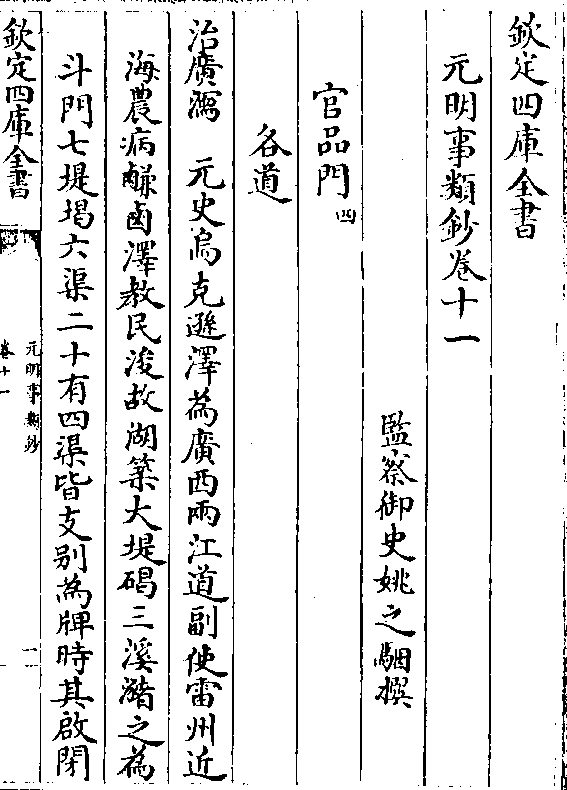 欽定四庫全書
元明事類鈔卷十一
監察御史姚之駰撰
官品門四
各道
治廣瀉　元史烏克遜澤為廣西兩江道副使雷州近
海農病鹹鹵澤教民浚故湖築大堤碣三溪潴之為
斗門七堤堨六渠二十有四渠皆支别為牌時其啟閉
欽定四庫全書
元明事類鈔
卷十一
一